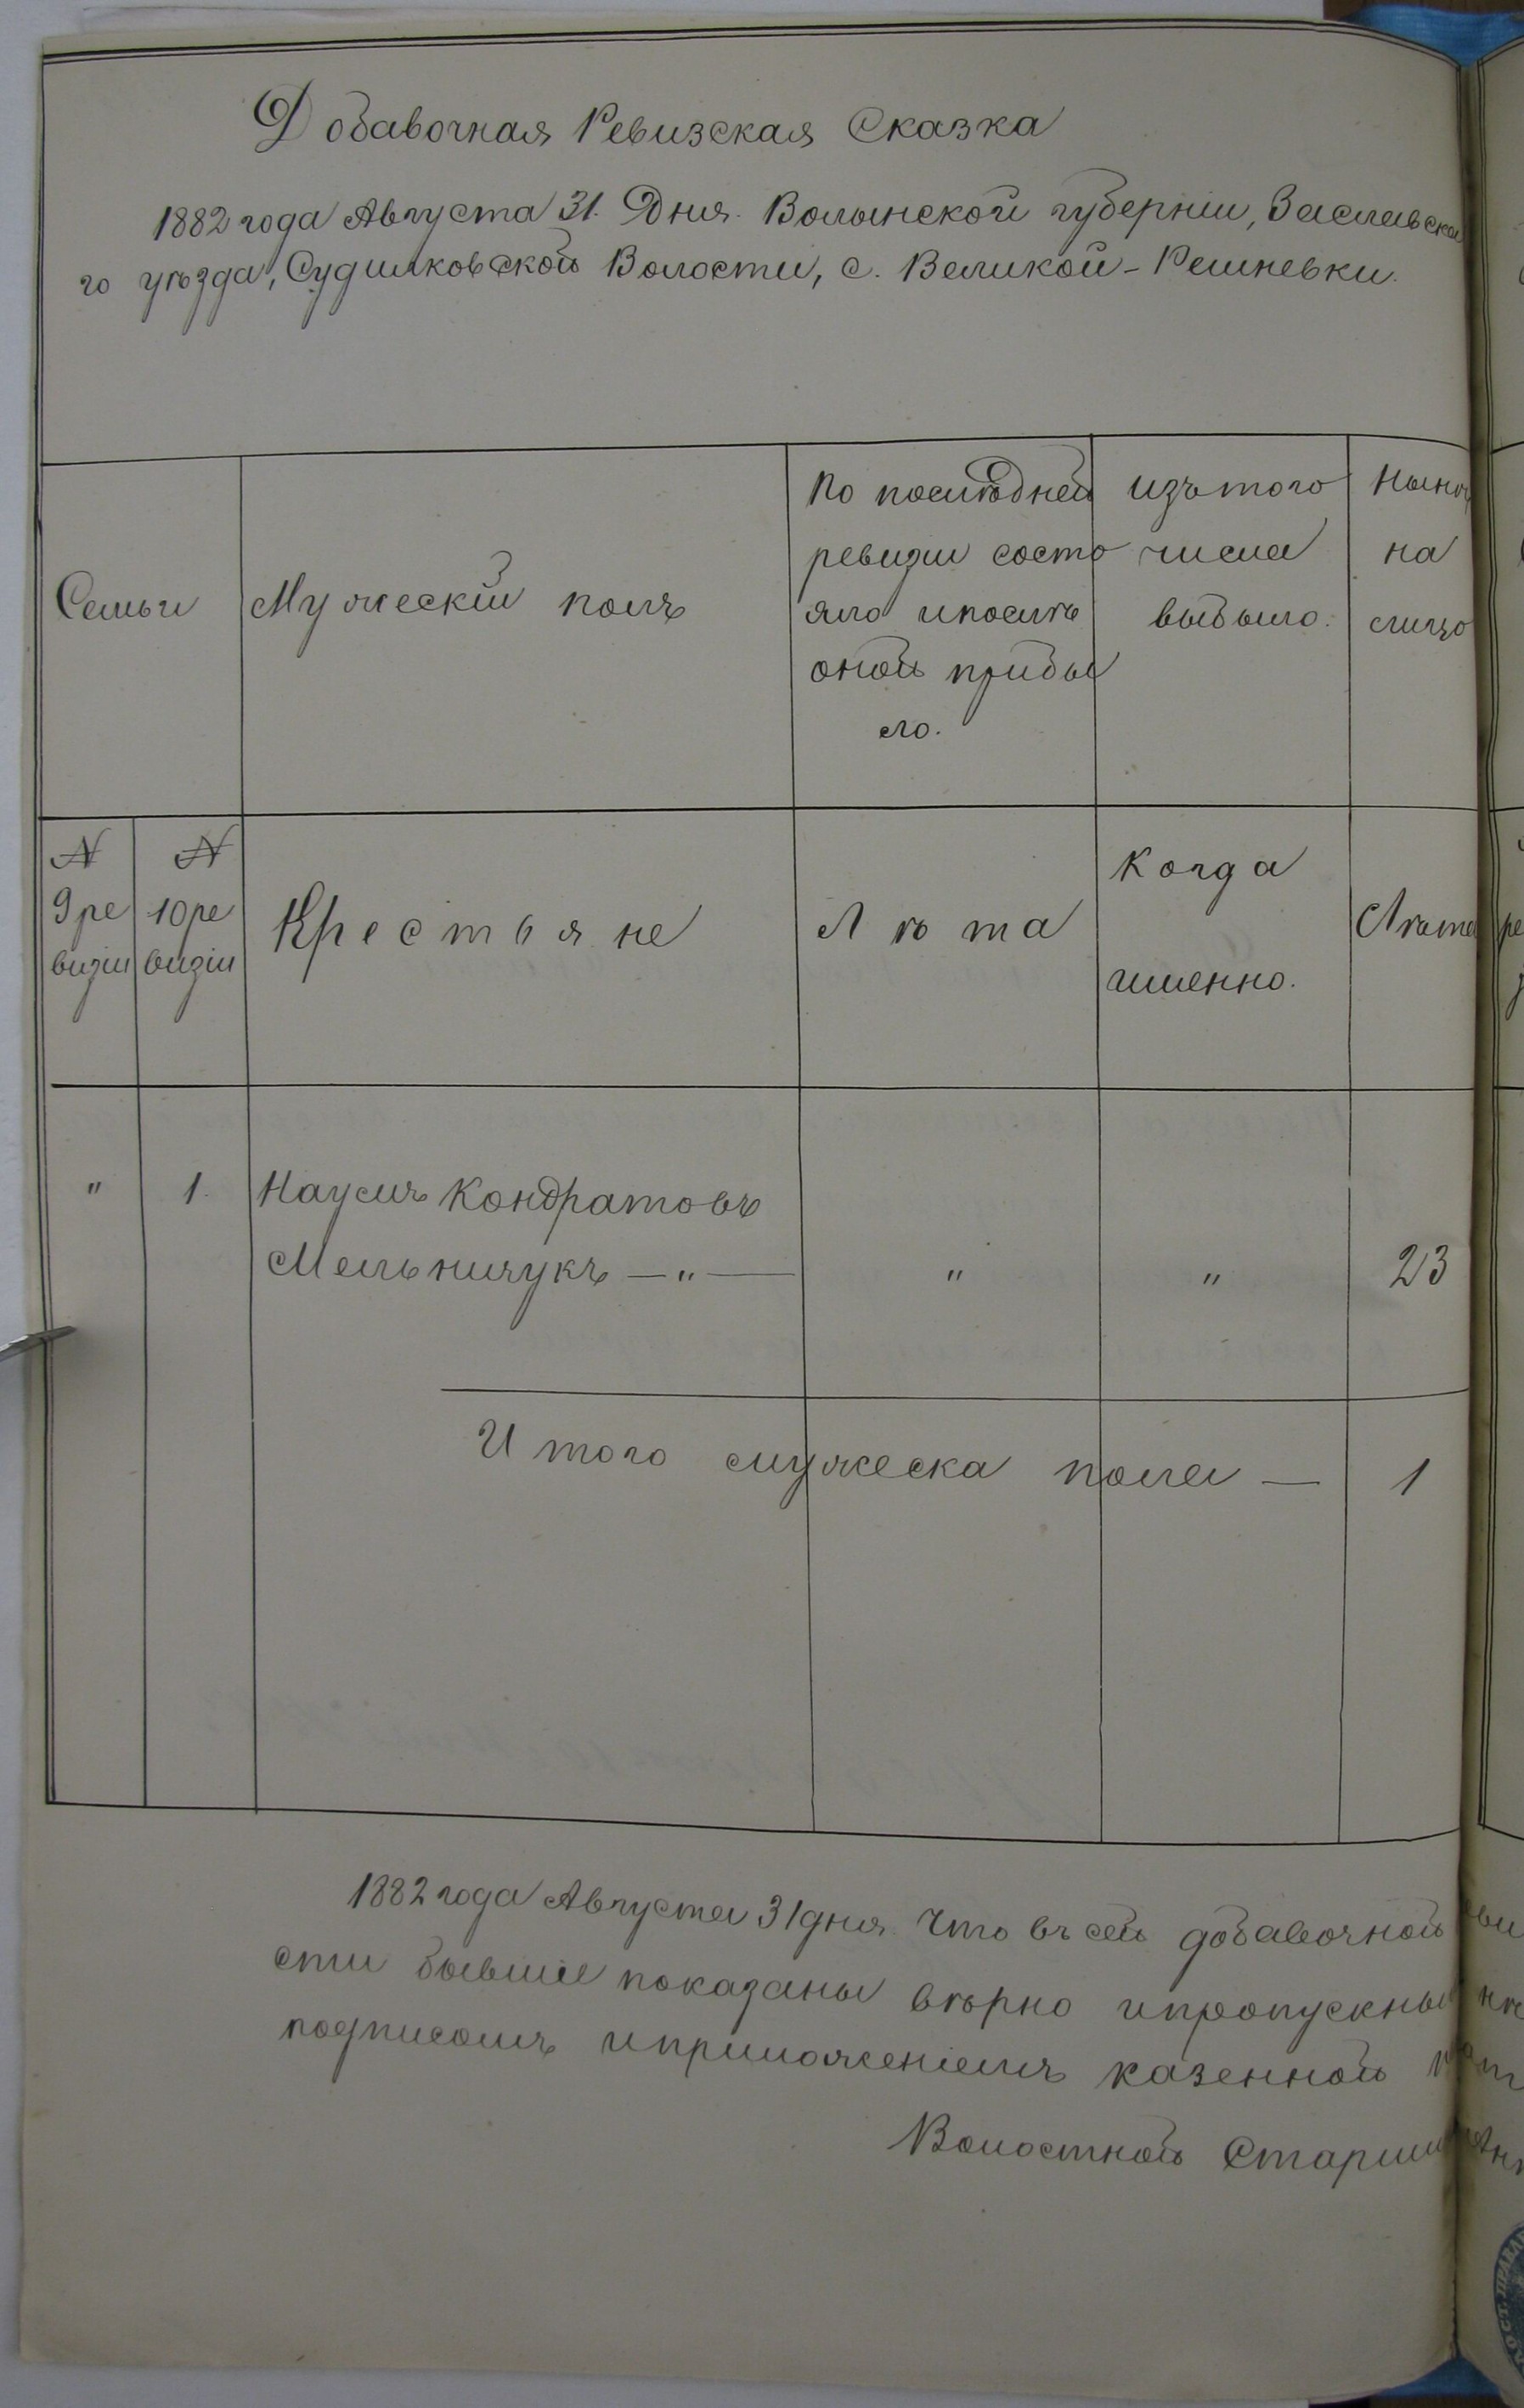 Добавочная Ревизская Сказка
1882 года Августа 31. Дня. Волынской губерніи, Заславска
го уѣзда, Судилковской Волости, с. Великой-Решневки.
Семьи
Мужескій полъ
По послѣдней
ревизіи состо
яло и послѣ
оной прибы
ло.
изъ того
числа
выбыло.
Нынѣ
на
лицо
№ 9 ре визіи
№ 10 ре визіи
Крестьяне
Лѣта
Когда
именно.
Лѣта
" 1. Наумъ Кондратовъ
Мельничукъ — " — " " 23
Итого мужеска пола — 1
1882 года Августа 31 дня. Что въ сей добавочной
сти бывшіе показаны вѣрно и пропускны
подписомъ и приложеніемъ казенной
Волостной Старши